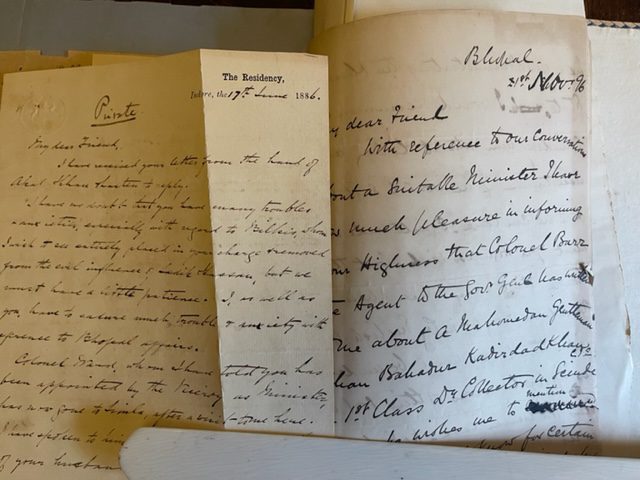 The Residency,
Indore, the 17th June 1886.
Private
My dear Friend,
I have received your letter from the hand of
Akal Khan hasten to reply.
I have no doubt that you have many troubles
& anxieties, especially with regard to Bilkis, whom
I wish to see entirely placed in your charge & removed
from the evil influence of Sadik Hassan, but we
must have a little patience. I, as well as
you, have to endure much trouble & anxiety with
reference to Bhopal affairs.
Colonel Ward, whom I have told you has
been appointed by the Viceroy as Minister,
has now gone to Simla, after a visit to me here.
I have spoken to him
of your husband
Bhopal.
21st Novr 96
my dear Friend
With reference to our Conversation
about a Suitable Minister I have
much pleasure in informing
your Highness that Colonel Barr
Agent to the Govr Genl has written
me about A Mahomedan Gentleman
Khan Bahadur Kadirdad Khan C.I.E.
1st Class Dy Collector in Scinde
he wishes me to mention
know for certain